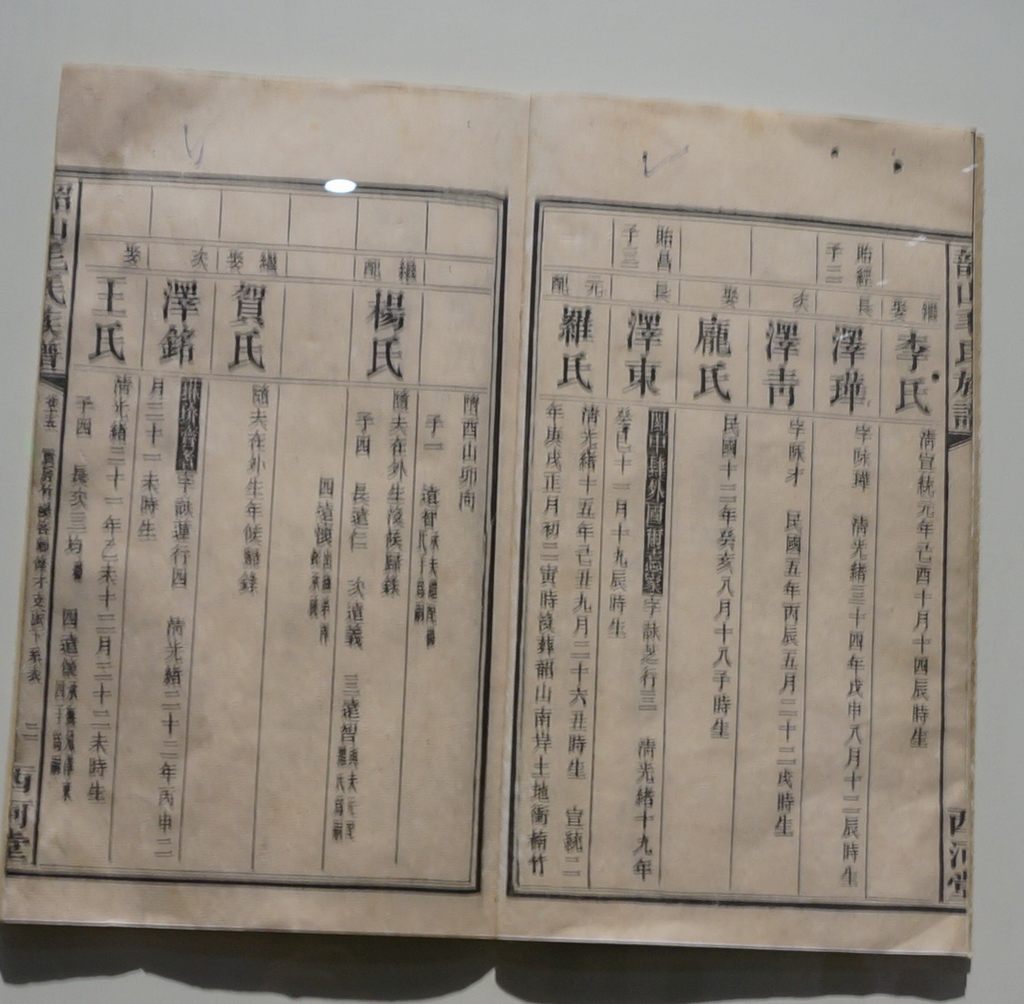 韶山毛氏族譜
西河堂
續娶
李氏
清宣統元年己酉十月十四辰時生
貽經子二
長
澤璍
字咏璍 清光緒三十四年戊申八月十二辰時生
次
澤青
字咏才 民國五年丙辰五月二十二戌時生
娶
龐氏
民國十二年癸亥八月十八子時生
貽昌子三
長
澤東
閭中肆外國而忘家字詠芝行三 清光緒十九年
癸巳十一月十九辰時生
元配
羅氏
清光緒十五年己丑九月二十六丑時生 宣統二
年庚戌正月初二寅時沒葬韶山南岸土地衝楠竹
墮酉山卯向
子一 遠智
繼配
楊氏
隨夫在外生沒候歸錄
子四 長遠仁 次遠義 三遠智
四遠懷
繼娶
賀氏
隨夫在外生年候歸錄
次
澤銘
字詠蓮行四 清光緒二十二年丙申二
月二十一未時生
娶
王氏
清光緒二十一年乙未十二月二十二未時生
子四 長次三均 四遠懷
韶山毛氏族譜
卷十五
二
西河堂